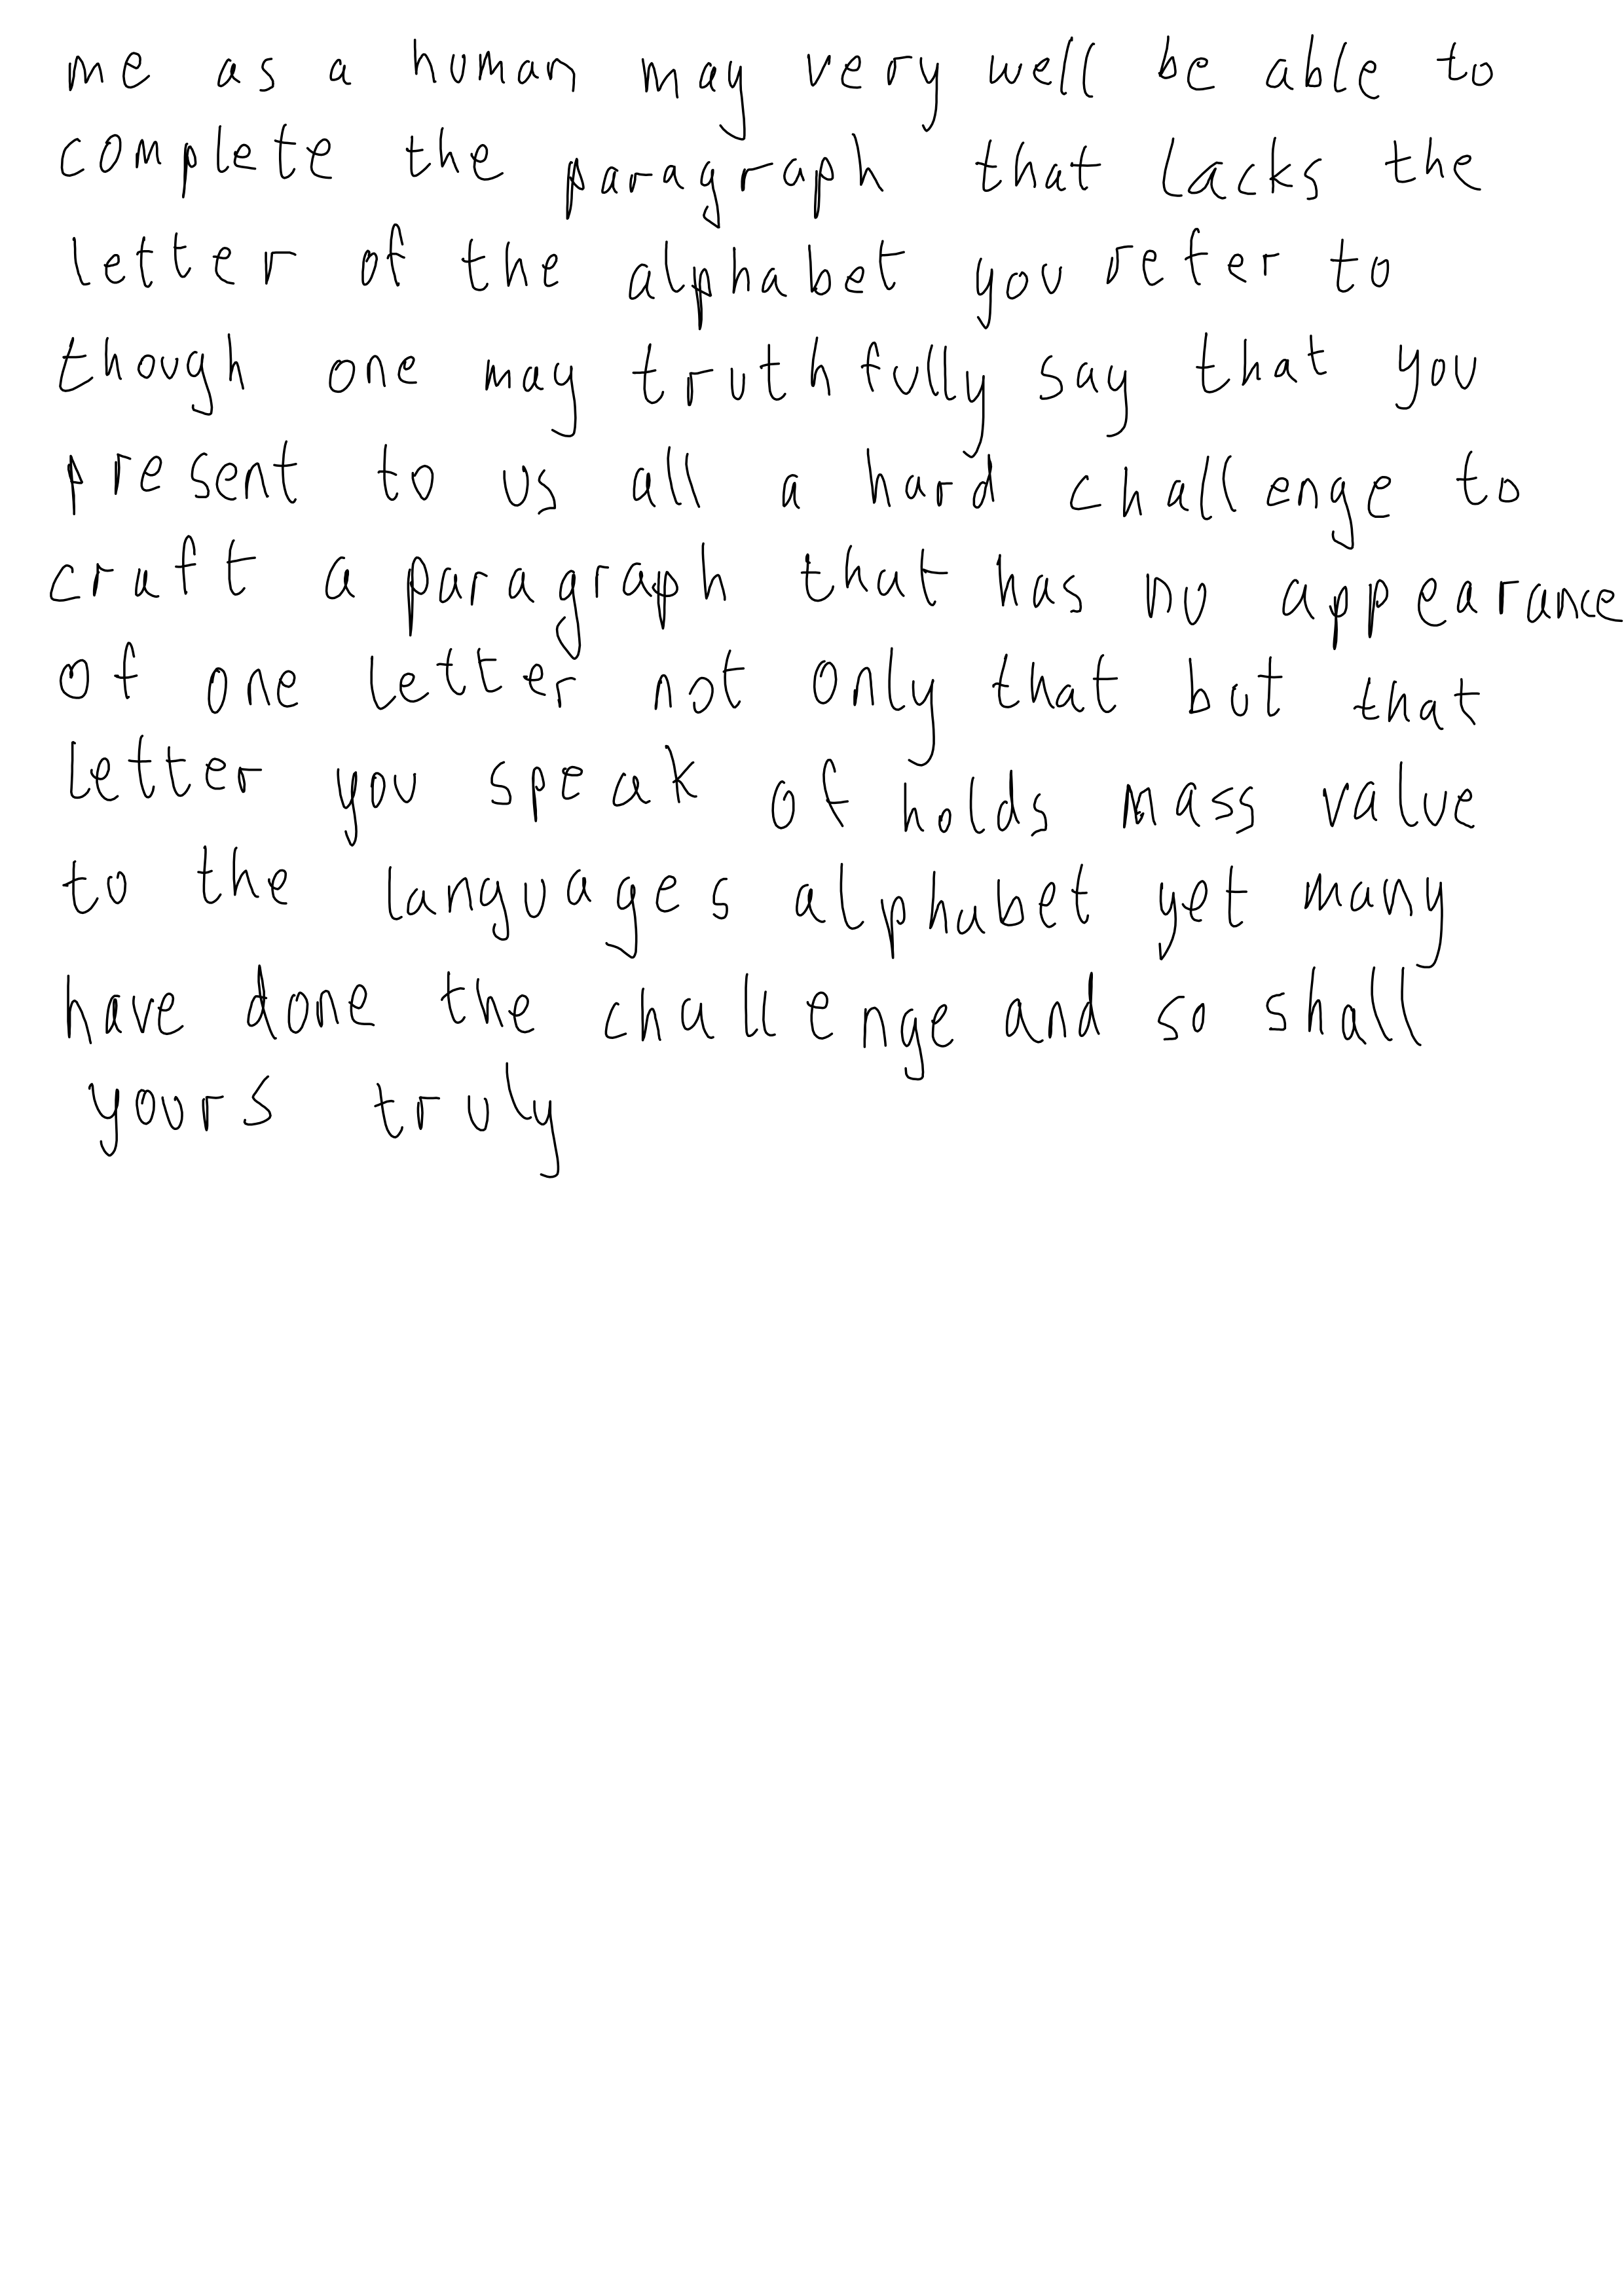 me as a human may very well be able to
complete the paragraph that lacks the
letter of the alphabet you refer to
thovgh one may truthfully say that you
present to us all a hard challenge to
craft a paragraph that has no appearance
of one letter not only that but that
letter you speak of holds mass value
to the languages alphabet yet many
have done the challenge and so shall
yours truly